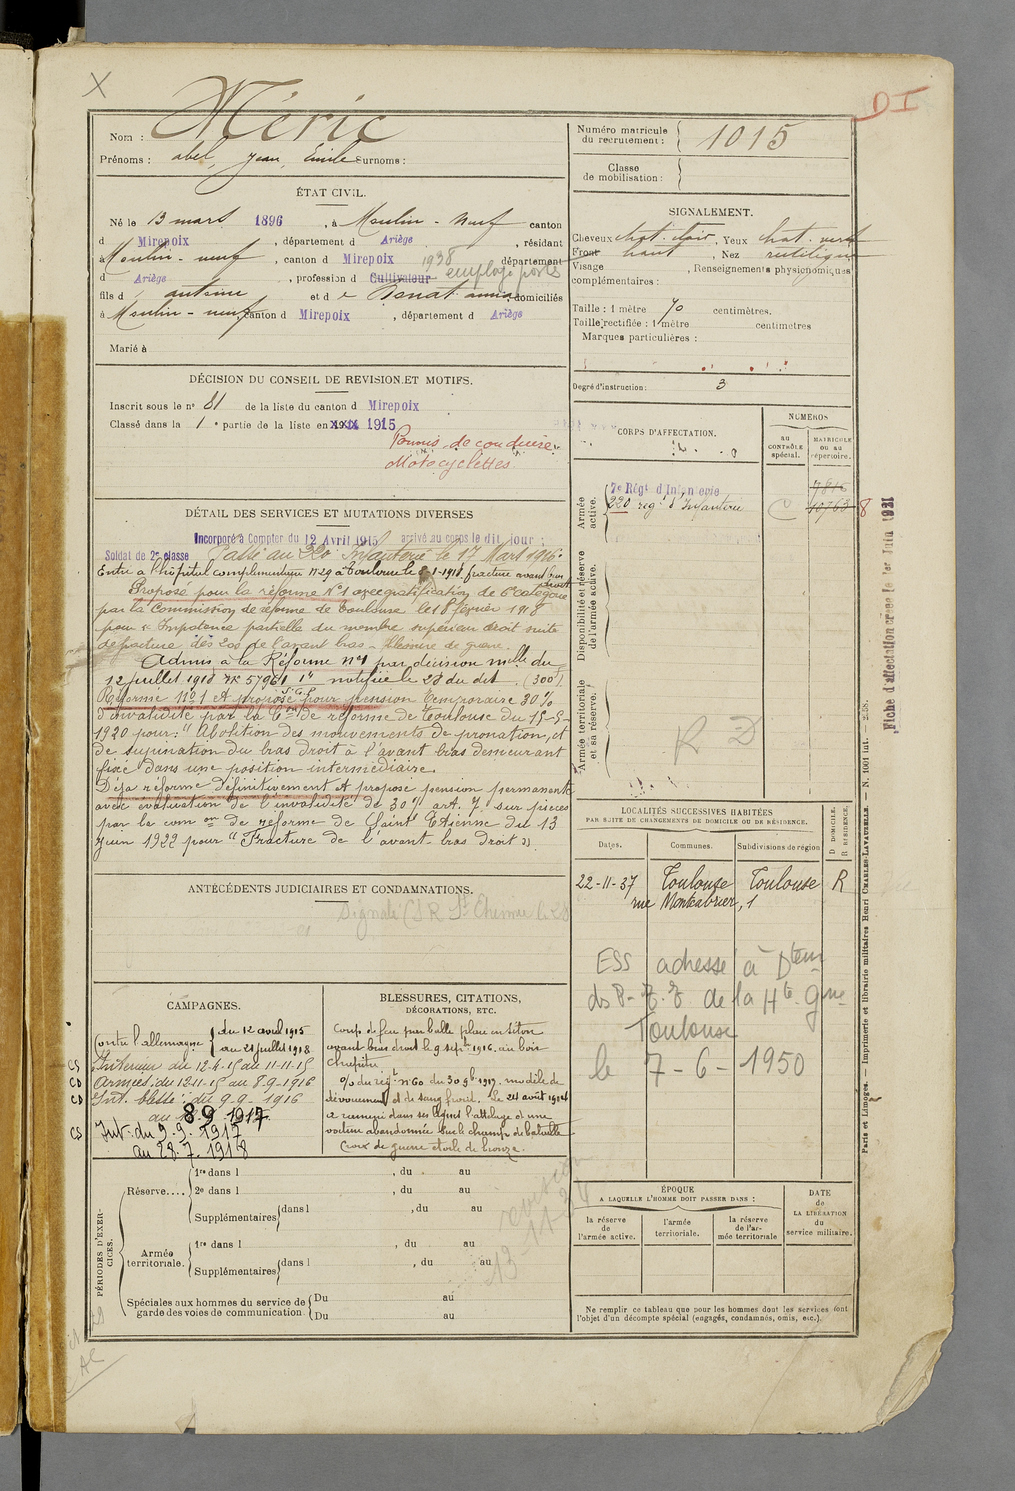 X
D I
Nom : Méric
Prénoms : abel, jean, Emile Surnoms :
Numéro matricule du recrutement : 1015
Classe de mobilisation :
ÉTAT CIVIL.
Né le 13 mars 1896, à Moulin-neuf canton
d Mirepoix, département d Ariège, résidant
à Moulin-neuf, canton d Mirepoix, département
1938
d Ariège, profession d Cultivateur employé postes
fils d antoine et d e Bonat anna, domiciliés
à Moulin-neuf, canton d Mirepoix, département d Ariège
Marié à
SIGNALEMENT.
Cheveux chat. clair, Yeux chat. vert
Front haut, Nez rectiligne
Visage , Renseignements physionomiques
complémentaires :
Taille : 1 mètre 70 centimètres.
Taille rectifiée : 1 mètre centimètres
Marques particulières :
Degré d'instruction : 3
DÉCISION DU CONSEIL DE REVISION ET MOTIFS.
Inscrit sous le n° 81 de la liste du canton d Mirepoix
Classé dans la 1e partie de la liste en 1915
Permis de conduire
Motocyclettes
DÉTAIL DES SERVICES ET MUTATIONS DIVERSES
Incorporé à Compter du 12 Avril 1915 arrivé au corps le dit jour ;
Soldat de 2e classe Passé au 220 Infanterie le 17 Mars 1916.
Entré à l'hôpital complémentaire n°29 à Toulouse le 1-1918, fracture avant bras droit
Proposé pour la réforme N°1 avec gratification de 6e catégorie
par la Commission de réforme de Toulouse le 18 février 1918
pour " Impotence partielle du membre supérieur droit suite
de fracture des 2 os de l'avant bras - blessure de guerre.
Admis à la Réforme n°1 par décision mlle du
12 juillet 1918 n° 57961 1" notifiée le 28 du dit. (300f)
Réformé N°1 et proposé pour pension temporaire 30%
d'invalidité par la Con de réforme de Toulouse du 15-5-
1920 pour : " Abolition des mouvements de pronation, et
de supination du bras droit à l'avant bras demeurant
fixé dans une position intermédiaire.
Déjà réformé définitivement et proposé pension permanente
avec évaluation de l'invalidité de 30% art. 7. sur pièces
par la com on de réforme de Saint Etienne du 13
Juin 1922 pour " Fracture de l'avant-bras droit "
CORPS D'AFFECTATION.
NUMÉROS
AU CONTRÔLE spécial.
MATRICULE OU AU répertoire.
Armée active.
7e Régt d'Infanterie
7816
220 régt d'Infanterie
C 10763 8
Disponibilité et réserve de l'armée active.
Armée territoriale et sa réserve.
R D
Fiche d'affectation créée le 1er Juin 1931
LOCALITÉS SUCCESSIVES HABITÉES
PAR SUITE DE CHANGEMENTS DE DOMICILE OU DE RÉSIDENCE.
Dates. Communes. Subdivisions de région D DOMICILE. R RÉSIDENCE.
22-11-37 Toulouse Toulouse R
rue Montcabrier, 1
ESS adressé à Dtem
de la Hte Gne
Toulouse
le 7-6-1950
ANTÉCÉDENTS JUDICIAIRES ET CONDAMNATIONS.
CAMPAGNES.
Contre l'allemagne { du 12 avril 1915
au 28 juillet 1918
CS Intérieur du 12-4-15 au 11-11-15
CD Armées du 12-11-15 au 8-9-1916
CD Int. blessé : du 9.9.1916
au 8 9 1917
CS Int. du 9.9.1917
au 28.7.1918
BLESSURES, CITATIONS, DÉCORATIONS, ETC.
Coup de feu par balle plaie en séton
avant bras droit le 9 septbre 1916 au bois
Chapitre
O/ du régt n°60 du 30 9b 1917. modèle de
dévouement et de sang froid. Le 24 août 1916
a ramené dans ses lignes l'attelage d'une
voiture abandonnée sur le champ de bataille
Croix de guerre étoile de bronze.
revision
13-11-24
PÉRIODES D'EXERCICES.
Réserve....
1re dans l , du au
2e dans l , du au
Supplémentaires dans l , du au
Armée territoriale.
1re dans l , du au
Supplémentaires dans l , du au
Spéciales aux hommes du service de garde des voies de communication.
Du au
Du au
ÉPOQUE
A LAQUELLE L'HOMME DOIT PASSER DANS :
la réserve de l'armée active.
l'armée territoriale.
la réserve de l'armée territoriale
DATE de LA LIBÉRATION du service militaire.
Ne remplir ce tableau que pour les hommes dont les services font
l'objet d'un décompte spécial (engagés, condamnés, omis, etc.).
Paris et Limoges. — Imprimerie et librairie militaires Henri CHARLES-LAVAUZELLE. — N. 1001 int.